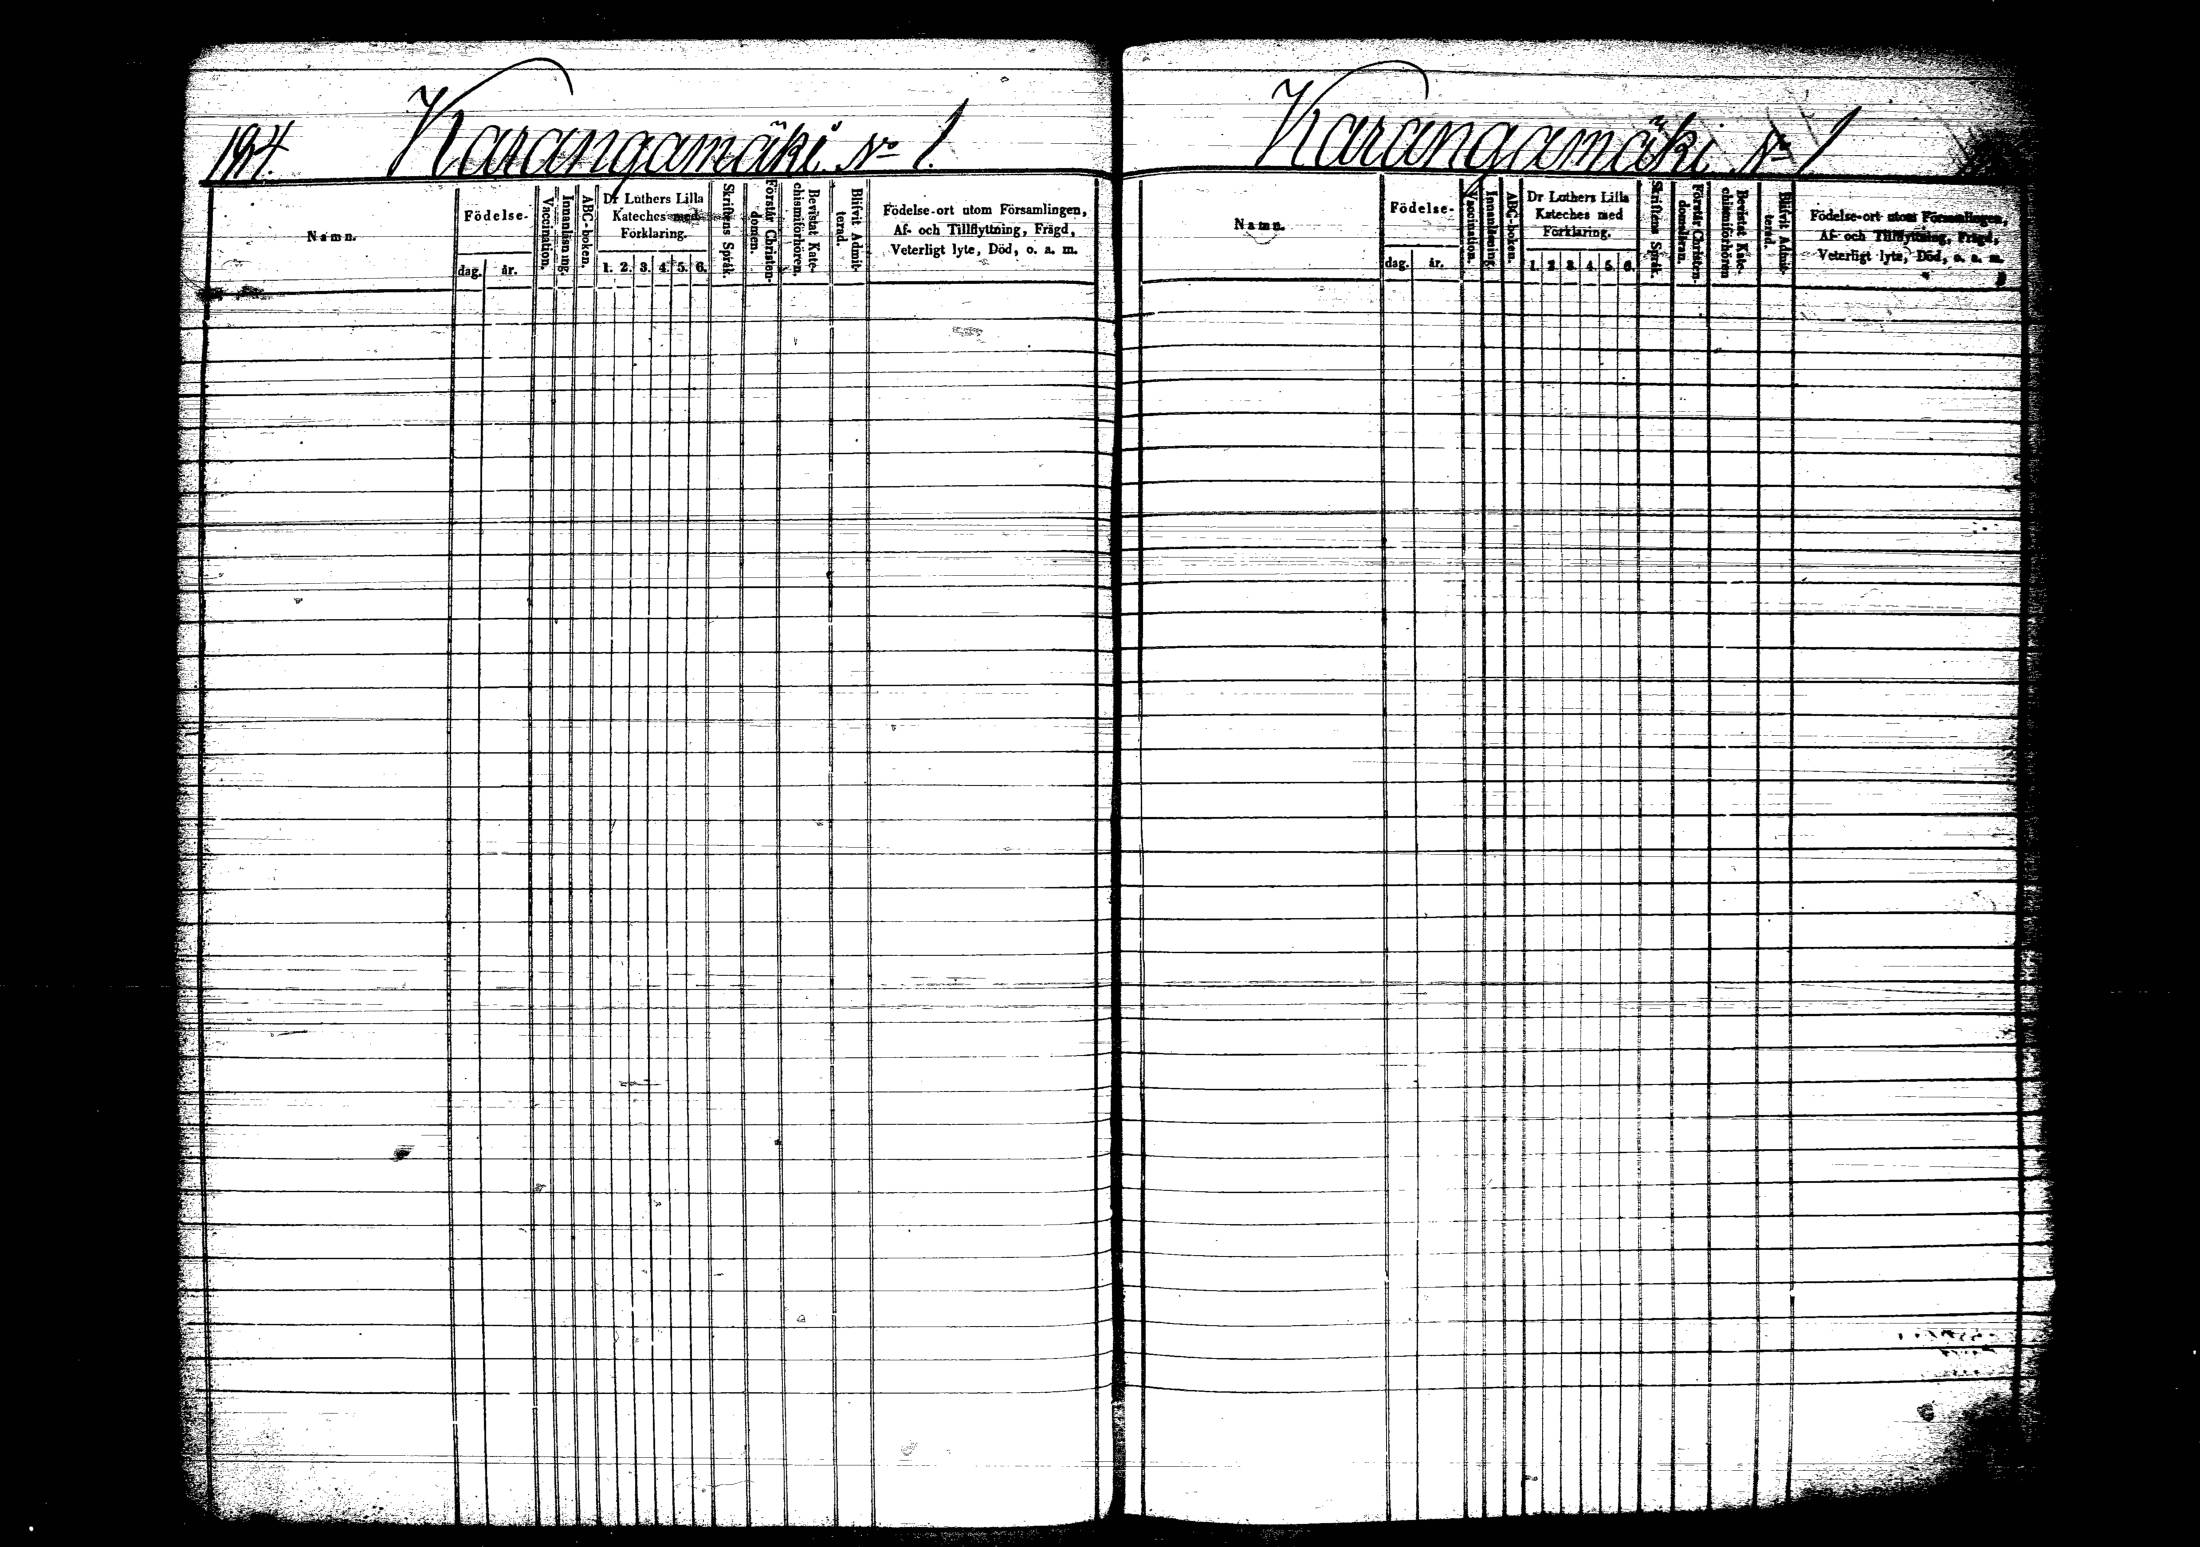 194. Karangamäki No 1.
Namn.
Födelse-
dag. år.
Vaccination.
Innanläsning.
ABC-boken.
Dr Luthers Lilla
Kateches med
Förklaring.
1. 2. 3. 4. 5. 6.
Skriftens Språk.
Förstår Christen-
domen.
Bevistat Kate-
chismiförhören.
Blifvit Admit-
terad.
Födelse-ort utom Församlingen,
Af- och Tillflyttning, Frägd,
Veterligt lyte, Död, o. a. m.
Karangamäki No 1
Namn.
Födelse-
dag. år.
Vaccination.
Innanläsning.
ABC-boken.
Dr Luthers Lilla
Kateches med
Förklaring.
1. 2. 3. 4. 5. 6.
Skriftens Språk.
Förstår Christen-
domsläran.
Bevistat Kate-
chismiförhören
Blifvit Admit-
terad.
Födelse-ort utom Församlingen,
Af- och Tillflyttning, Frägd,
Veterligt lyte, Död, o. a. m.